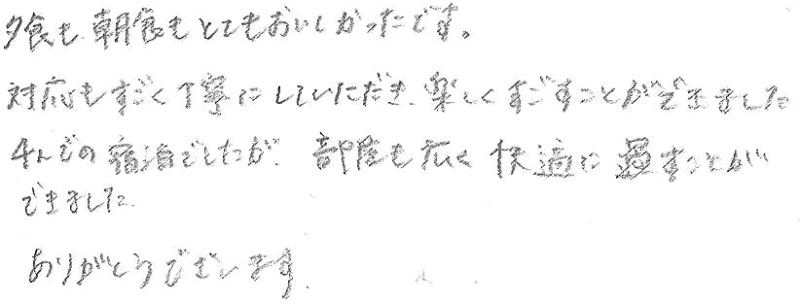 夕食も朝食もとてもおいしかったです。
対応もすごく丁寧にしていただき、楽しくすごすことができました
4人での宿泊でしたが、部屋も広く快適に過すことが
できました
ありがとうございます。